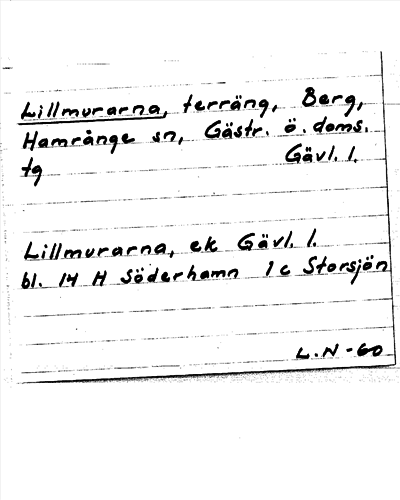 Lillmurarna, terräng, Berg,
Hamrånge sn, Gästr. ö. doms.
tg Gävl. l.
Lillmurarna, ek Gävl. l.
bl. 14 H Söderhamn 1c Storsjön
L.N-60